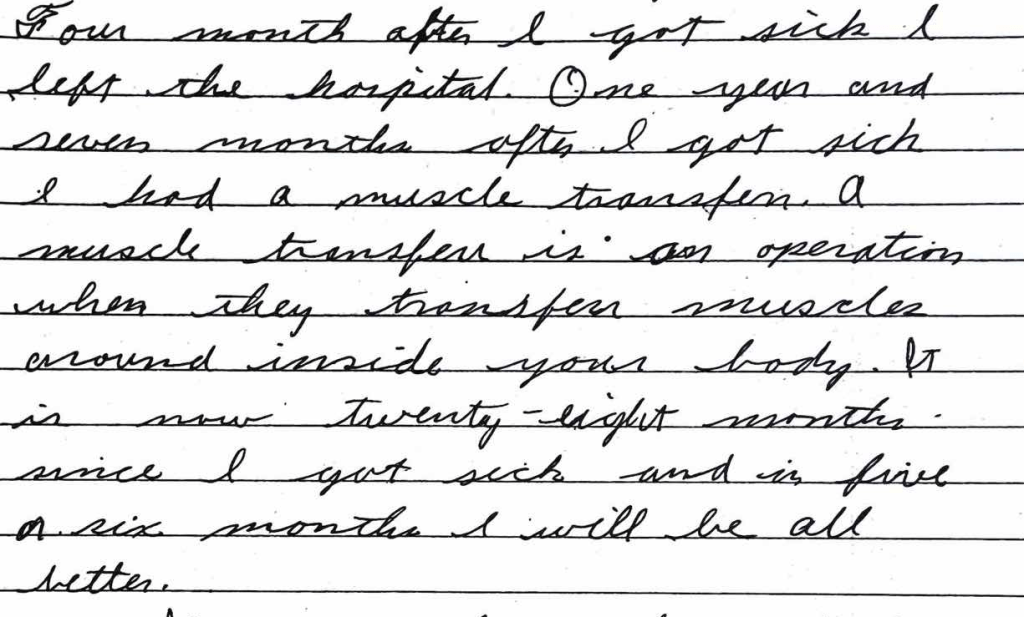 Four month after I got sick I
left the hospital. One year and
seven months after I got sick
I had a muscle transfer. A
muscle transfer is an operation
when they transfer muscles
around inside your body. It
is now twenty-eight months
since I got sick and in five
or six months I will be all
better.